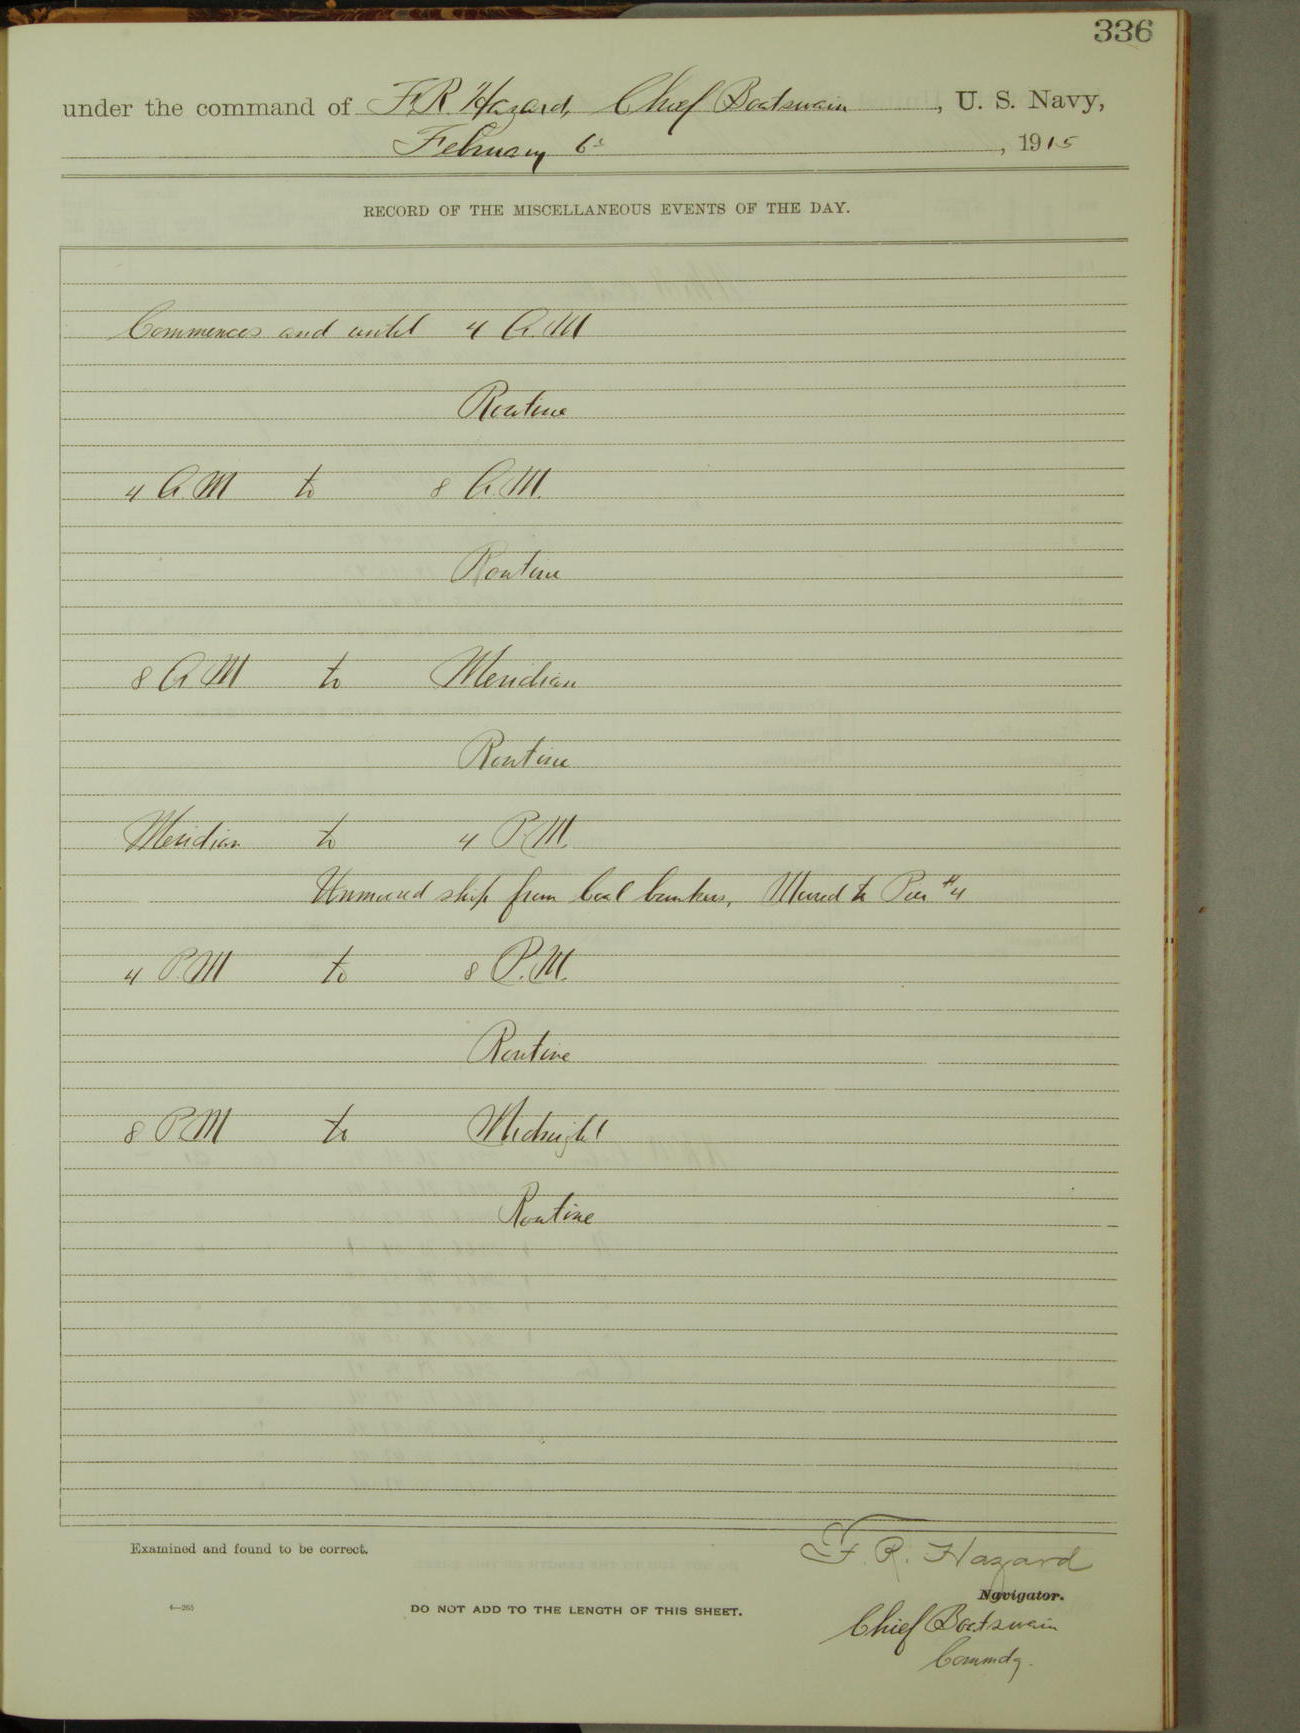 336
under the command of F. R. Hazard, Chief Boatswain, U. S. Navy,
February 6, 1915
RECORD OF THE MISCELLANEOUS EVENTS OF THE DAY.
Commences and until 4 A.M
Routine
4 A.M to 8 A.M.
Routine
8 A.M to Meridian
Routine
Meridian to 4 P.M.
Unmoored ship from Coal bunkers, Moved to Pier #4
4 P.M to 8 P.M.
Routine
8 P.M to Midnight
Routine
Examined and found to be correct.
F. R. Hazard
Navigator.
4—265
DO NOT ADD TO THE LENGTH OF THIS SHEET.
Chief Boatswain
Commdg.